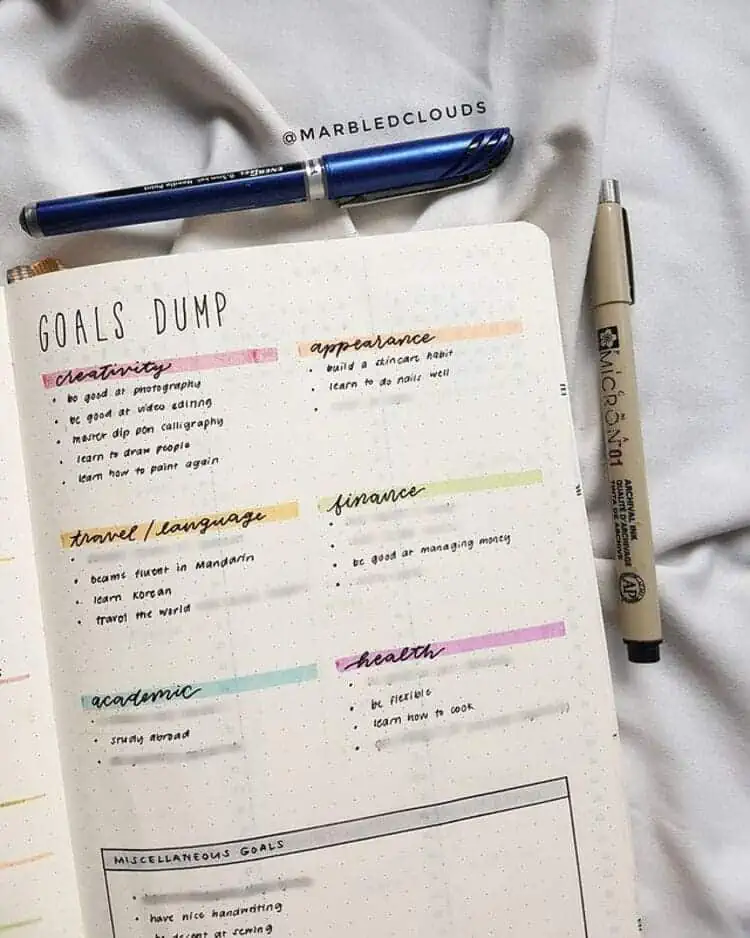 @MARBLEDCLOUDS
ENERGEL
GOALS DUMP
creativity
• be good at photography
• be good at video editing
• master dip pen calligraphy
• learn to draw people
• learn how to paint again
appearance
• build a skincare habit
• learn to do nails well
travel / language
• become fluent in Mandarin
• learn Korean
• travel the world
finance
• be good at managing money
academic
• study abroad
health
• be flexible
• learn how to cook
MISCELLANEOUS GOALS
• have nice handwriting
• be decent at sewing
MICRON 01
ARCHIVAL INK
QUALITÉ D'ARCHIVAGE
TINTA DE ARCHIVO
AP